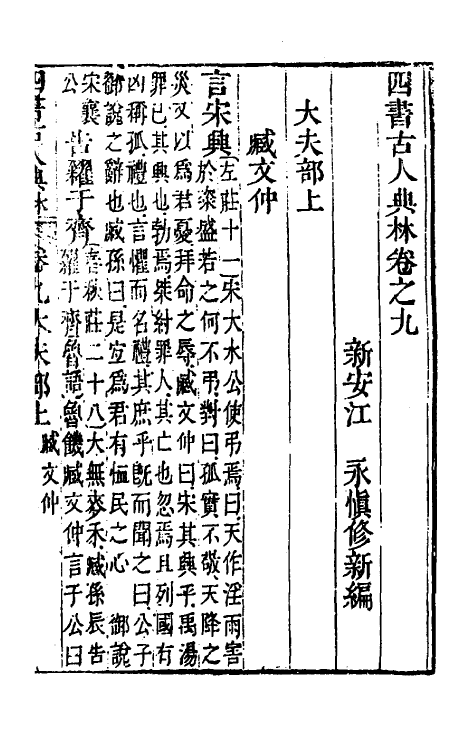 四書古人典林卷之九
新安江　永愼修新編
大夫部上
臧文仲
言宋興左莊十一宋大水公使弔焉曰天作淫雨害
於粢盛若之何不弔對曰孤實不敬天降之
災又以爲君憂拜命之辱臧文仲曰宋其興乎禹湯
罪已其興也勃焉桀紂罪人其亡也忽焉且列國有
凶稱孤禮也言懼而名禮其庶乎旣而聞之曰公子
御說之辭也臧孫曰是宜爲君有恤民之心　御說
宋襄公
告糴于齊春秋莊二十八大無麥禾臧孫辰告
糴于齊魯語魯饑臧文仲言于公曰
四書古人典林　卷九大夫部上　臧文仲